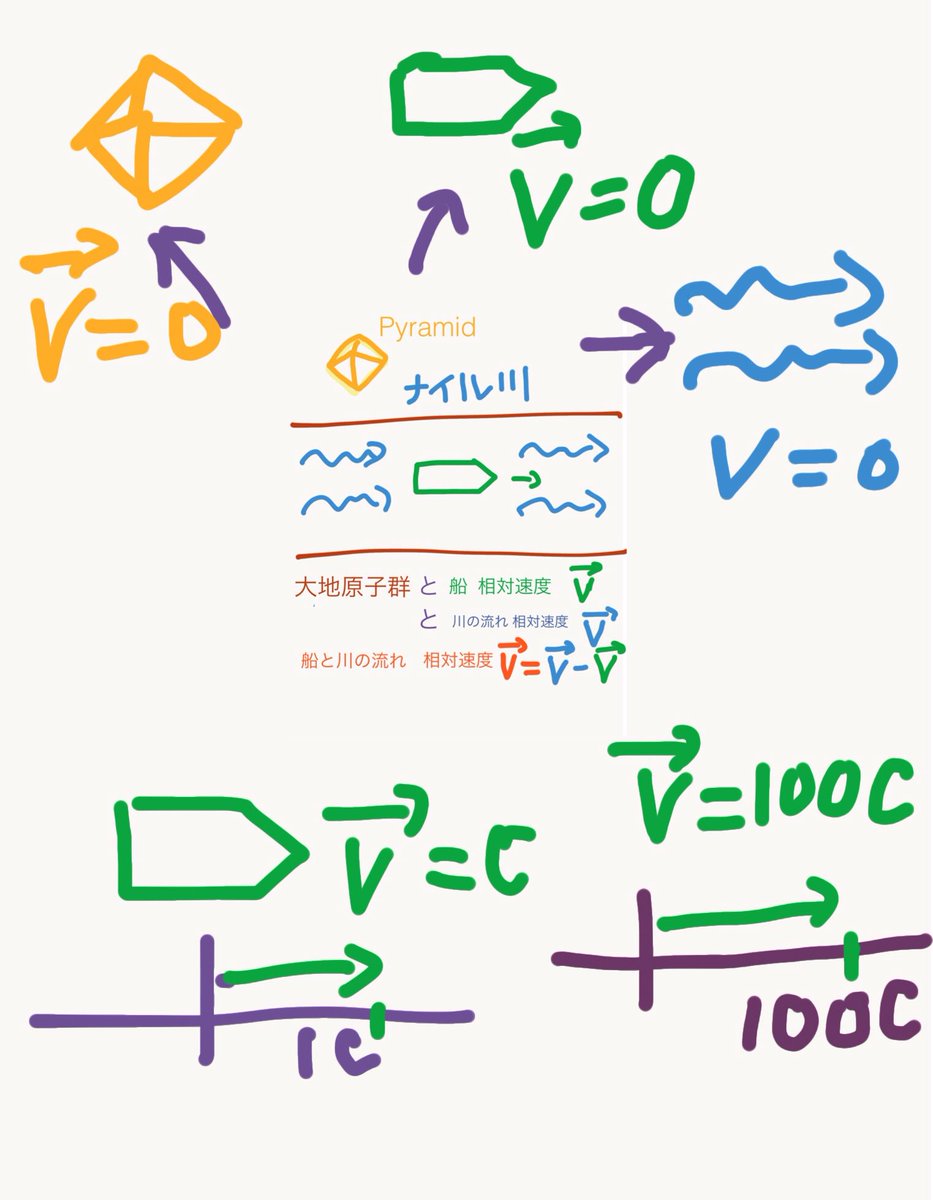 V=0
V=0
Pyramid
ナイル川
V=0
大地原子群 と 船 相対速度 V
と 川の流れ 相対速度 V
船と川の流れ 相対速度 V=V-V
V=C
V=100C
1C
100C